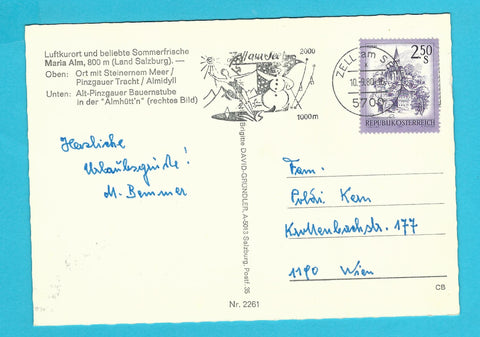 Luftkurort und beliebte Sommerfrische
Maria Alm, 800 m (Land Salzburg). —
Oben: Ort mit Steinernem Meer /
Pinzgauer Tracht / Almidyll
Unten: Alt-Pinzgauer Bauernstube
in der "Almhütt'n" (rechtes Bild)
Zell am See
2000
1000m
ZELL am S
5700
2 50
S
REPUBLIK ÖSTERREICH
Herzliche
Urlaubsgrüße!
Brigitte DAVID-GRÜNDLER, A-5013 Salzburg, Postf. 35
Fam.
Kern
Krottenbachstr. 177
1190 Wien
Nr. 2261
CB